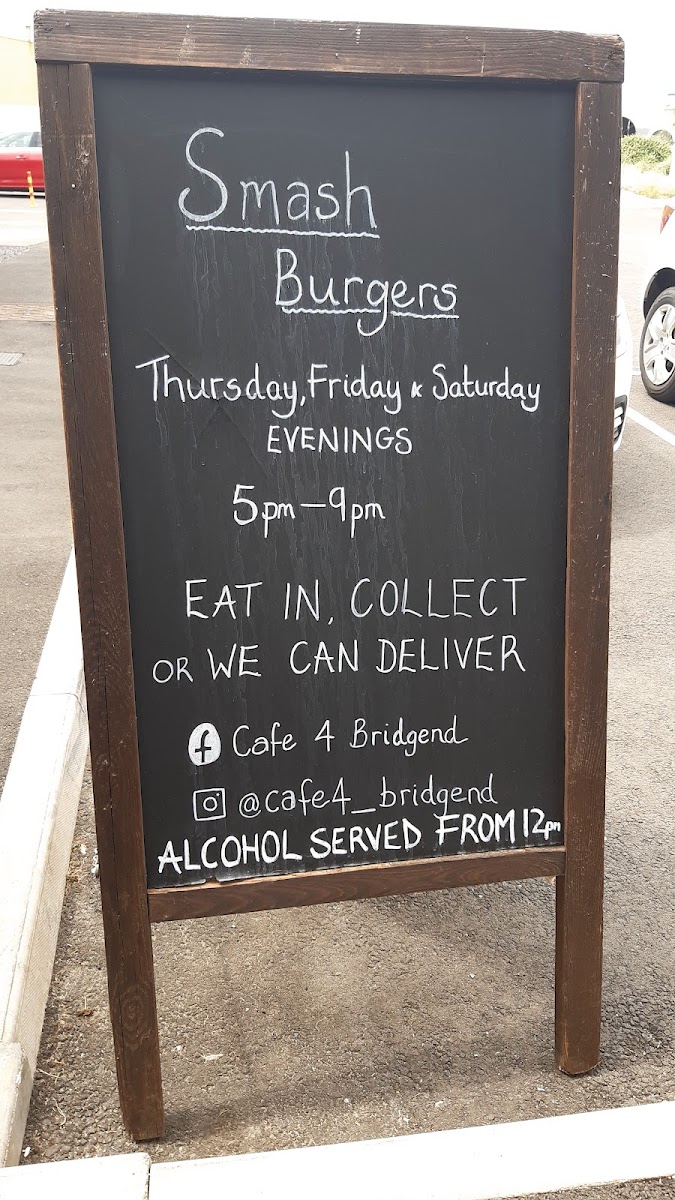 Smash
Burgers
Thursday, Friday & Saturday
EVENINGS
5pm - 9pm
EAT IN, COLLECT
OR WE CAN DELIVER
f Cafe 4 Bridgend
@cafe4_bridgend
ALCOHOL SERVED FROM 12pm